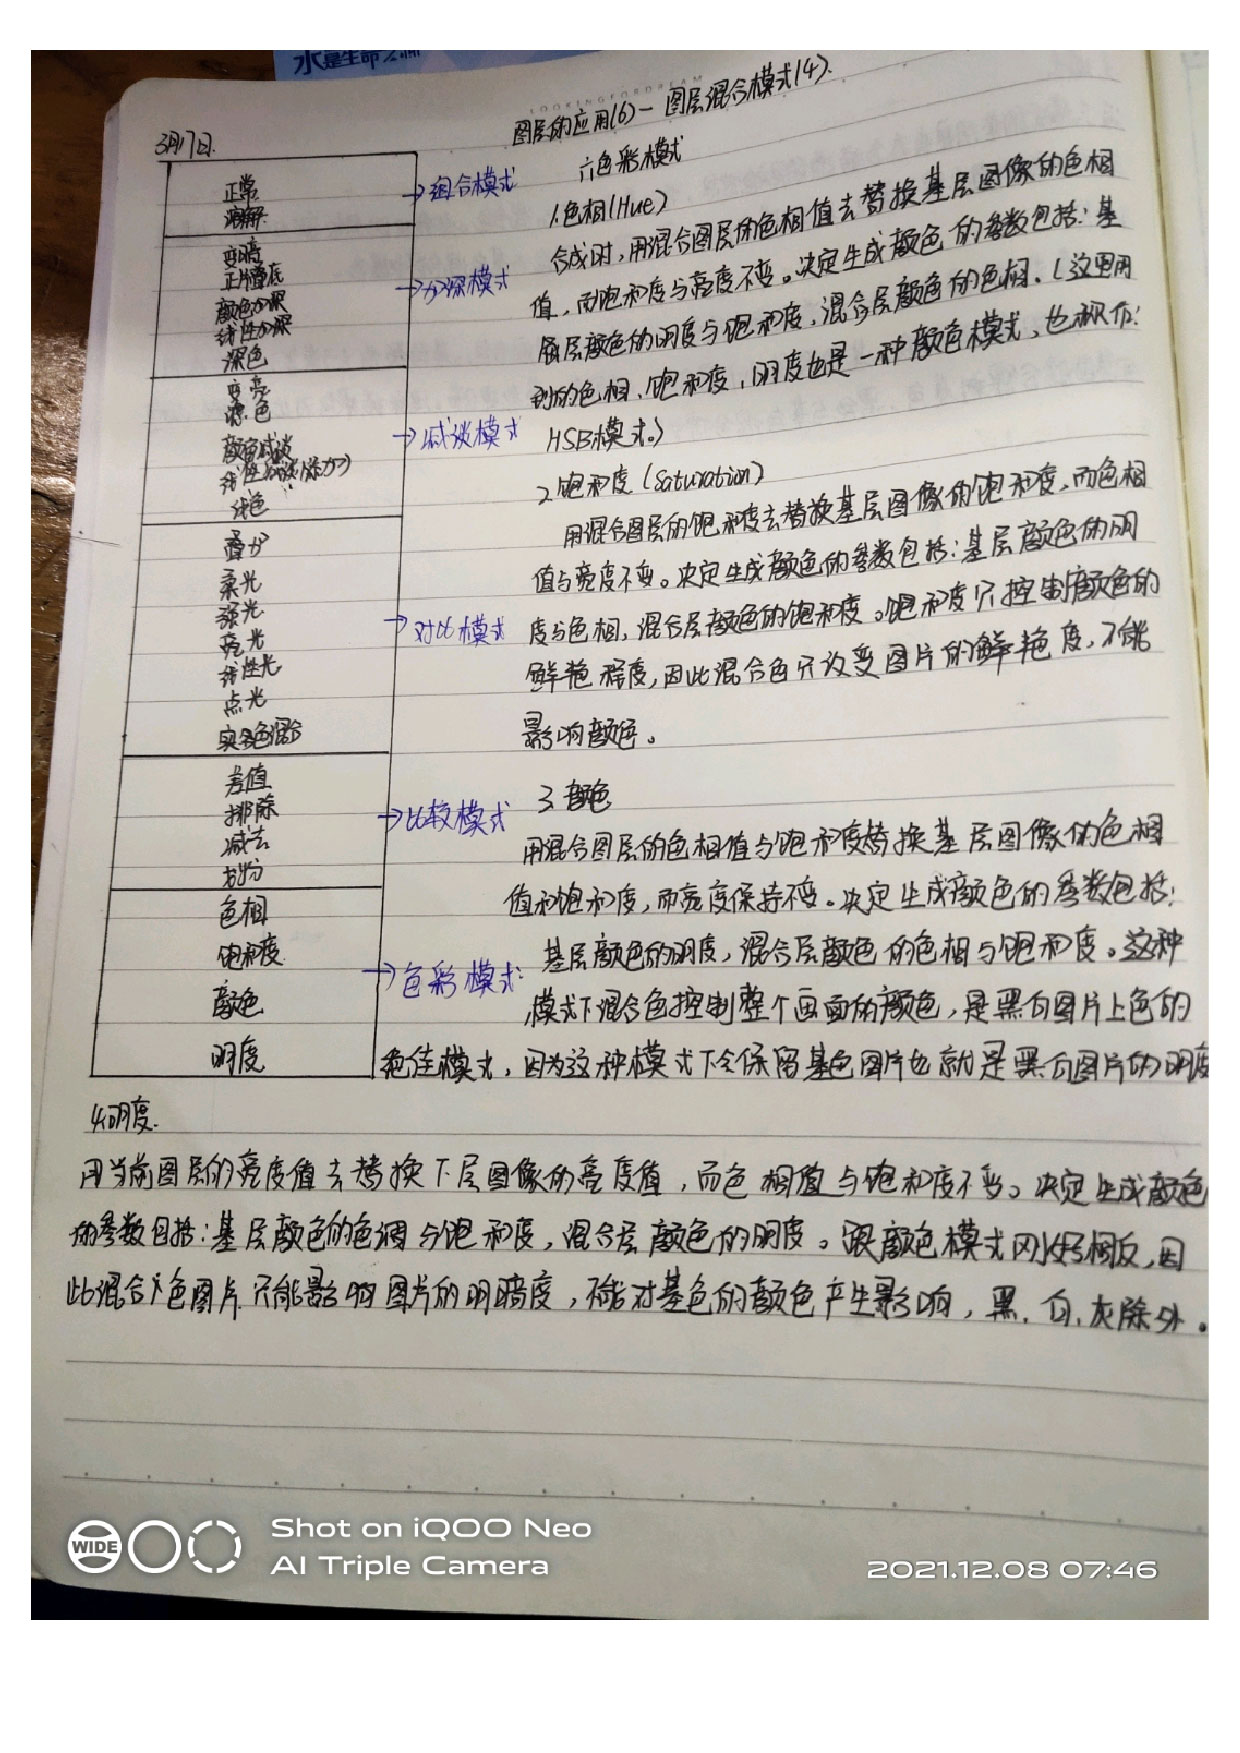 水是生命之源
LOOKINGFORDREAM
3月17日.
图层的应用(6)-图层混合模式(4).
六色彩模式
正常
溶解
→组合模式
变暗
正片叠底
颜色加深
线性加深
深色
→加深模式
变亮
滤色
颜色减淡
线性减淡(添加)
浅色
→减淡模式
叠加
柔光
强光
亮光
线性光
点光
实色混合
→对比模式
差值
排除
减去
划分
→比较模式
色相
饱和度
颜色
明度
→色彩模式:
1.色相(Hue)
合成时,用混合图层的色相值去替换基层图像的色相
值,而饱和度与亮度不变。决定生成颜色的参数包括:基
层颜色的明度与饱和度,混合层颜色的色相。(这里用
到的色相、饱和度,明度也是一种颜色模式,也称作:
HSB模式。)
2.饱和度(Saturation)
用混合图层的饱和度去替换基层图像的饱和度,而色相
值与亮度不变。决定生成颜色的参数包括:基层颜色的明
度与色相,混合层颜色的饱和度。饱和度只控制颜色的
鲜艳程度,因此混合色只改变图片的鲜艳度,不能
影响颜色。
3.颜色
用混合图层的色相值与饱和度替换基层图像的色相
值和饱和度,而亮度保持不变。决定生成颜色的参数包括:
基层颜色的明度,混合层颜色的色相与饱和度。这种
模式下混合色控制整个画面的颜色,是黑白图片上色的
绝佳模式,因为这种模式下会保留基色图片也就是黑白图片的明度
4.明度.
用当前图层的亮度值去替换下层图像的亮度值,而色相值与饱和度不变。决定生成颜色
的参数包括:基层颜色的色调与饱和度,混合层颜色的明度。跟颜色模式刚好相反,因
此混合色图片只能影响图片的明暗度,不能对基色的颜色产生影响,黑、白、灰除外。
WIDE
Shot on iQOO Neo
AI Triple Camera
2021.12.08 07:46